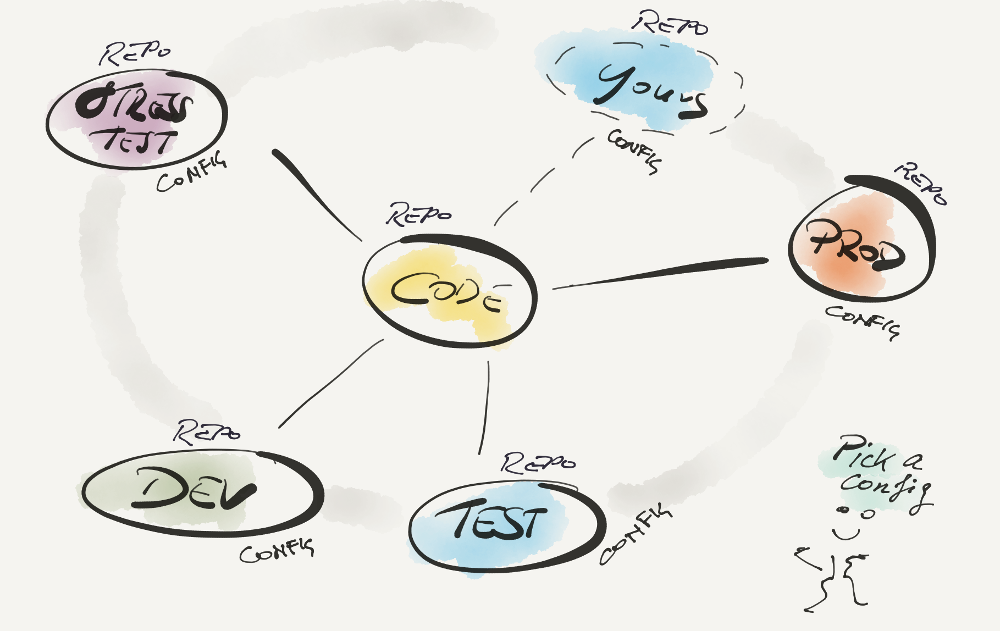 REPO
STRESS
TEST
CONFIG
REPO
Yours
CONFIG
REPO
PROD
CONFIG
REPO
CODE
REPO
DEV
CONFIG
REPO
TEST
CONFIG
Pick a
Config